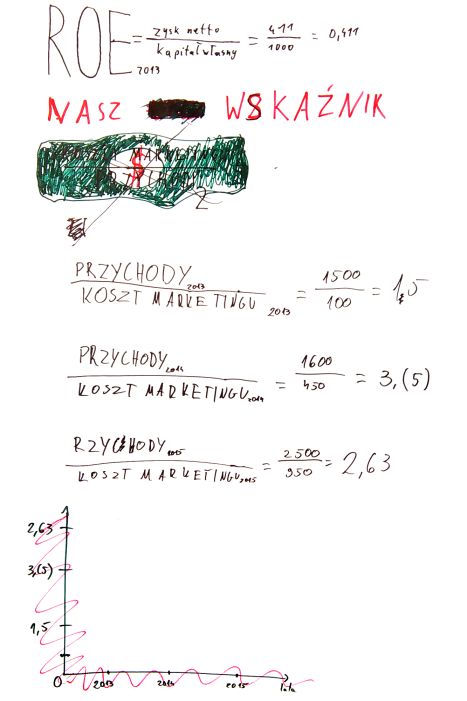 ROE 2013 = zysk netto / kapitał własny = 411 / 1000 = 0,411
NASZ WSKAŹNIK
MARKETING
2
PRZYCHODY 2013 / KOSZT MARKETINGU 2013 = 1500 / 100 = 1,5
PRZYCHODY 2014 / KOSZT MARKETINGU 2014 = 1600 / 450 = 3,(5)
RZYCHODY 2015 / KOSZT MARKETINGU 2015 = 2500 / 950 = 2,63
2,63
3,(5)
1,5
0 2013 2014 2015 lata